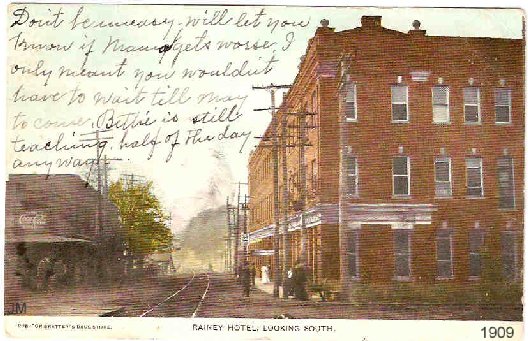 Don't be uneasy - will let you
know if Mama gets worse, I
only meant you wouldn't
have to wait till May
to come. Bettie is still
teaching, half of the day
anyway.
Coca-Cola
RAINEY HOTEL, LOOKING SOUTH.
1909